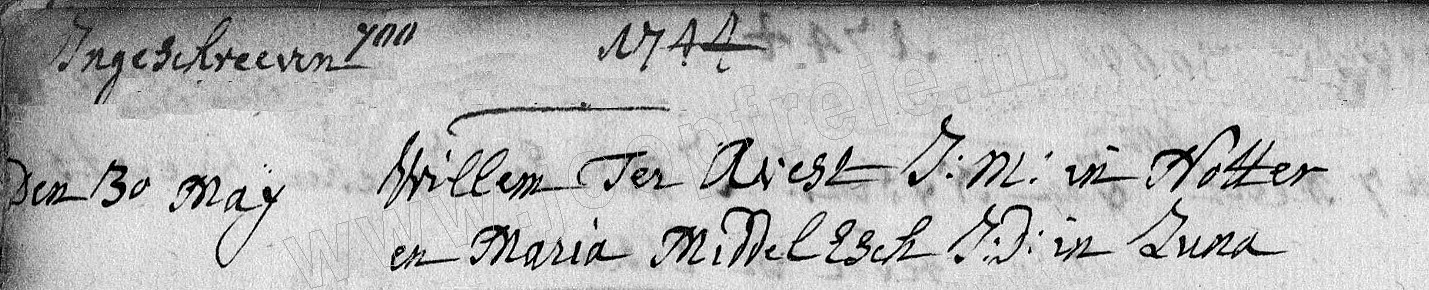 Ingeschreeven 1744
Den 30 May Willem Ter Avest J: M: in Notter
en Maria MiddelEsch J: D: in Zuna